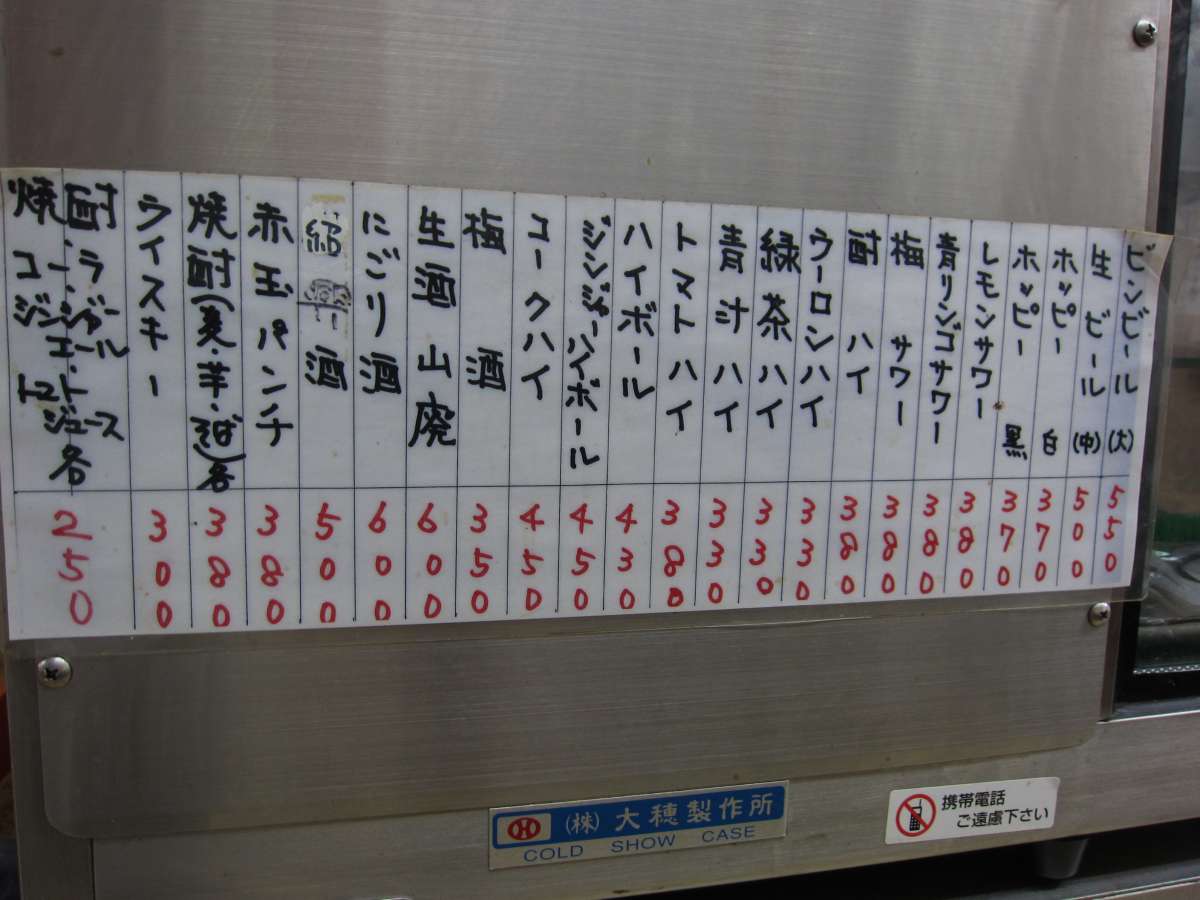 ビンビール (大) 550
生ビール (中) 500
ホッピー 白 370
ホッピー 黒 370
レモンサワー 380
青リンゴサワー 380
梅サワー 380
酎ハイ 380
ウーロンハイ 330
緑茶ハイ 330
青汁ハイ 330
トマトハイ 380
ハイボール 430
ジンジャーハイボール 450
コークハイ 450
梅酒 350
生酒 山廃 600
にごり酒 600
紹興酒 500
赤玉パンチ 380
焼酎(麦・芋・そば)各 380
ウイスキー 300
焼酎・コーラ・ジンジャーエール・トマトジュース各 250
(株)大穂製作所
COLD SHOW CASE
携帯電話
ご遠慮下さい